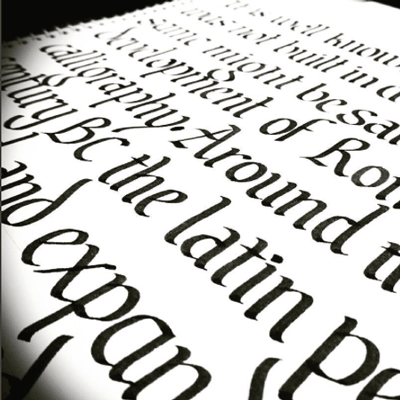 is well know
not built in a
same might be sai
development of Ro
calligraphy. Around
century BC the latin pe
and expan